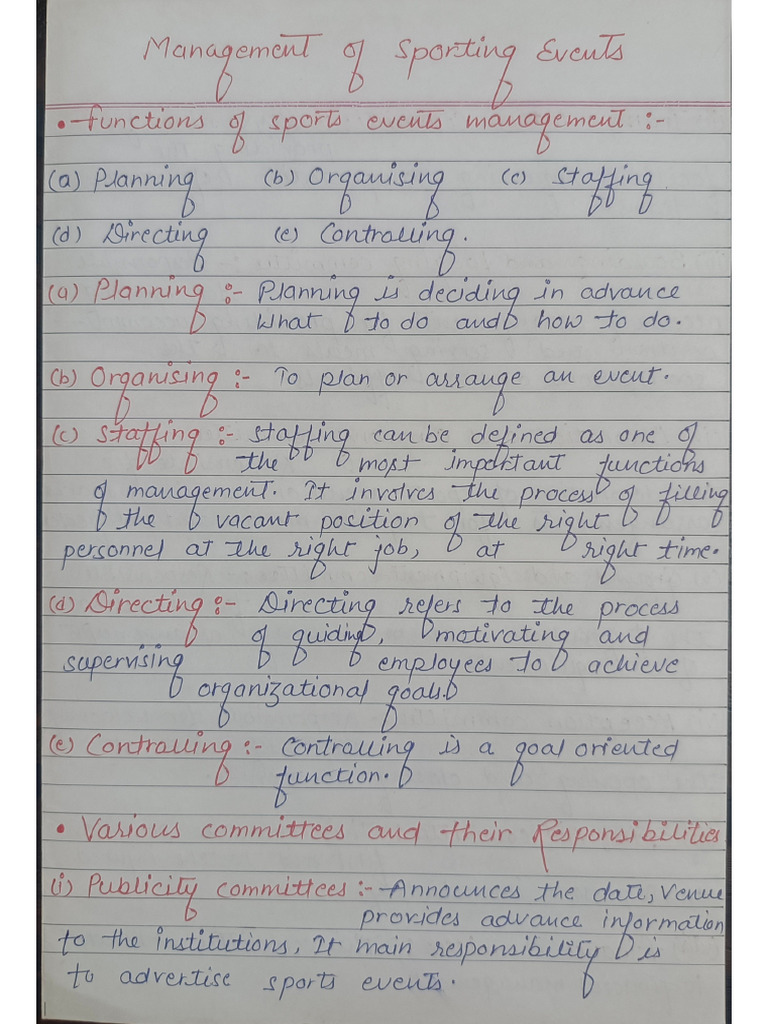 Management of Sporting Events
• Functions of sports events management :-
(a) Planning (b) Organising (c) Staffing
(d) Directing (e) Controlling.
(a) Planning :- Planning is deciding in advance
what to do and how to do.
(b) Organising :- To plan or arrange an event.
(c) Staffing :- Staffing can be defined as one of
the most important functions
of management. It involves the process of filling
the vacant position of the right
personnel at the right job, at right time.
(d) Directing :- Directing refers to the process
of guiding, motivating and
supervising employees to achieve
organizational goals.
(e) Controlling :- Controlling is a goal oriented
function.
• Various committees and their Responsibilities
(i) Publicity committees :- Announces the date, venue
provides advance information
to the institutions, It main responsibility is
to advertise sports events.